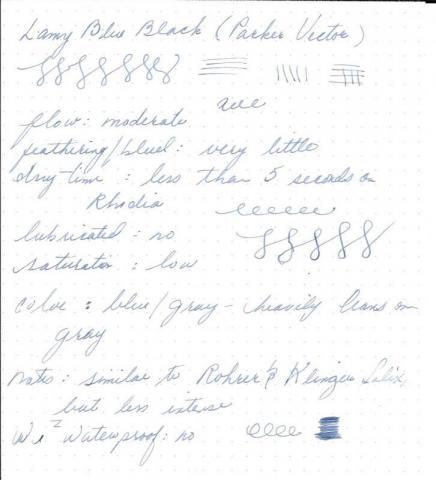 Lamy Blue Black (Parker Vector)
flow: moderate
feathering/bleed: very little
dry-time : less than 5 seconds on
Rhodia
lubricated: no
saturation : low
color : blue/gray - heavily leans on
gray
notes: similar to Rohrer & Klinger Salix,
but less intense
Waterproof: no